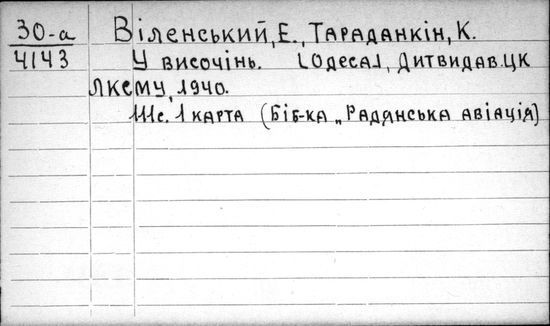 30-а Віленський, Е., Тараданкін, К.
4143 У височінь. [Одеса], Дитвидав. ЦК
ЛКСМУ, 1940.
111с. 1 карта (Біб-ка „Радянська авіація)